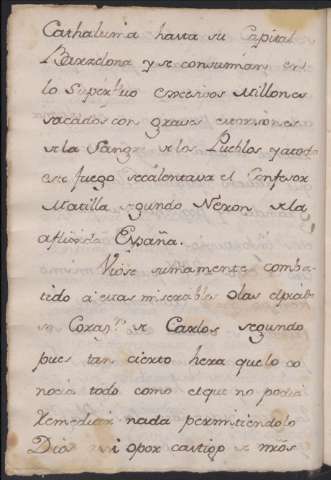 Cathalunia hasta su Capital
Barzelona y se consumian en
lo superfluo excesivos Millones
sacados con graves extorsiones
de la Sangre de los Pueblos y a todo
este fuego se calentava el Confesor
Matilla segundo Neron de la
afligida España.
Viose sumamente comba
tido a estas miserables olas el
Corazn de Carlos segundo
pues tan cierto hera que lo co
nocia todo como el que no podia
remediar nada permitiendolo
Dios asi o por castigo de nros